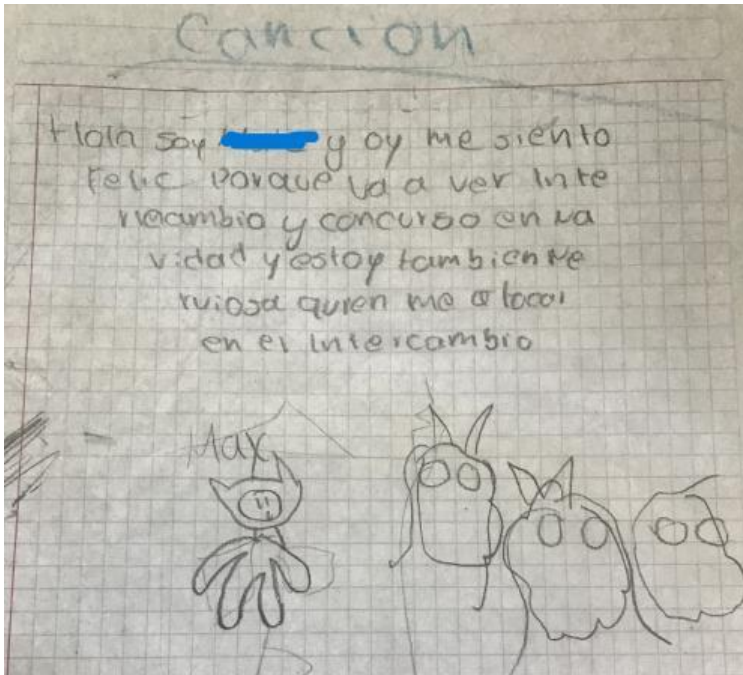 Cancion
Hola soy y oy me siento
Felic porque va a ver inte
rrecambio y concurso en na
vidad y estoy tambien ne
rviosa quien me a tocar
en el intercambio
Max